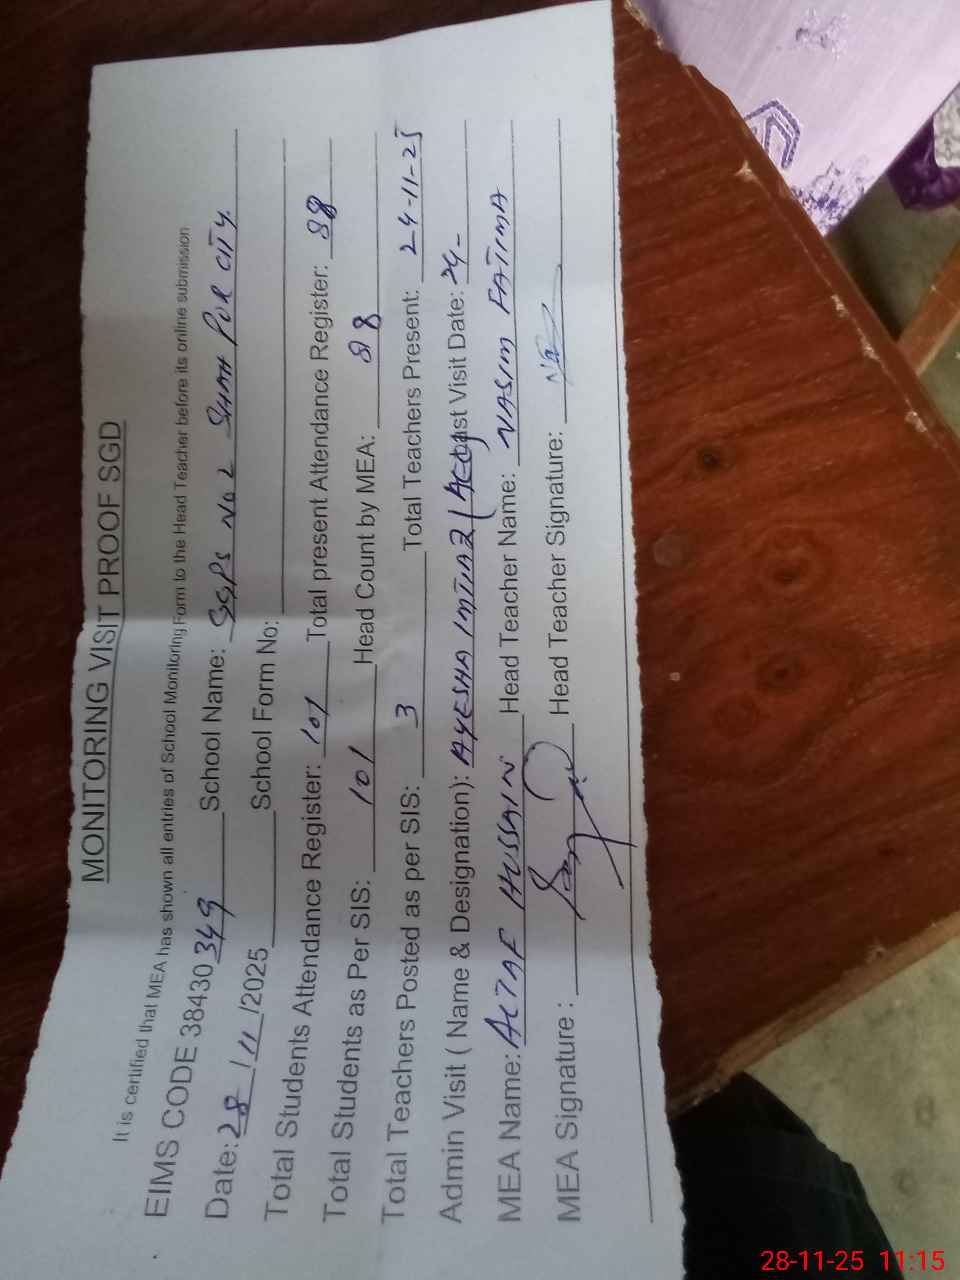 MONITORING VISIT PROOF SGD
It is certified that MEA has shown all entries of School Monitoring Form to the Head Teacher before its online submission
EIMS CODE 38430349 School Name: GGPS No 2 SHAH PUR CITY.
Date: 28/11/2025 School Form No:
Total Students Attendance Register: 101 Total present Attendance Register: 88
Total Students as Per SIS: 101 Head Count by MEA: 88
Total Teachers Posted as per SIS: 3 Total Teachers Present: 24-11-25
Admin Visit ( Name & Designation): AYESHA IMTIAZ (AEO) Last Visit Date: 24-
MEA Name: ALTAF HUSSAIN Head Teacher Name: NASIM FATIMA
MEA Signature : Head Teacher Signature:
28-11-25 11:15